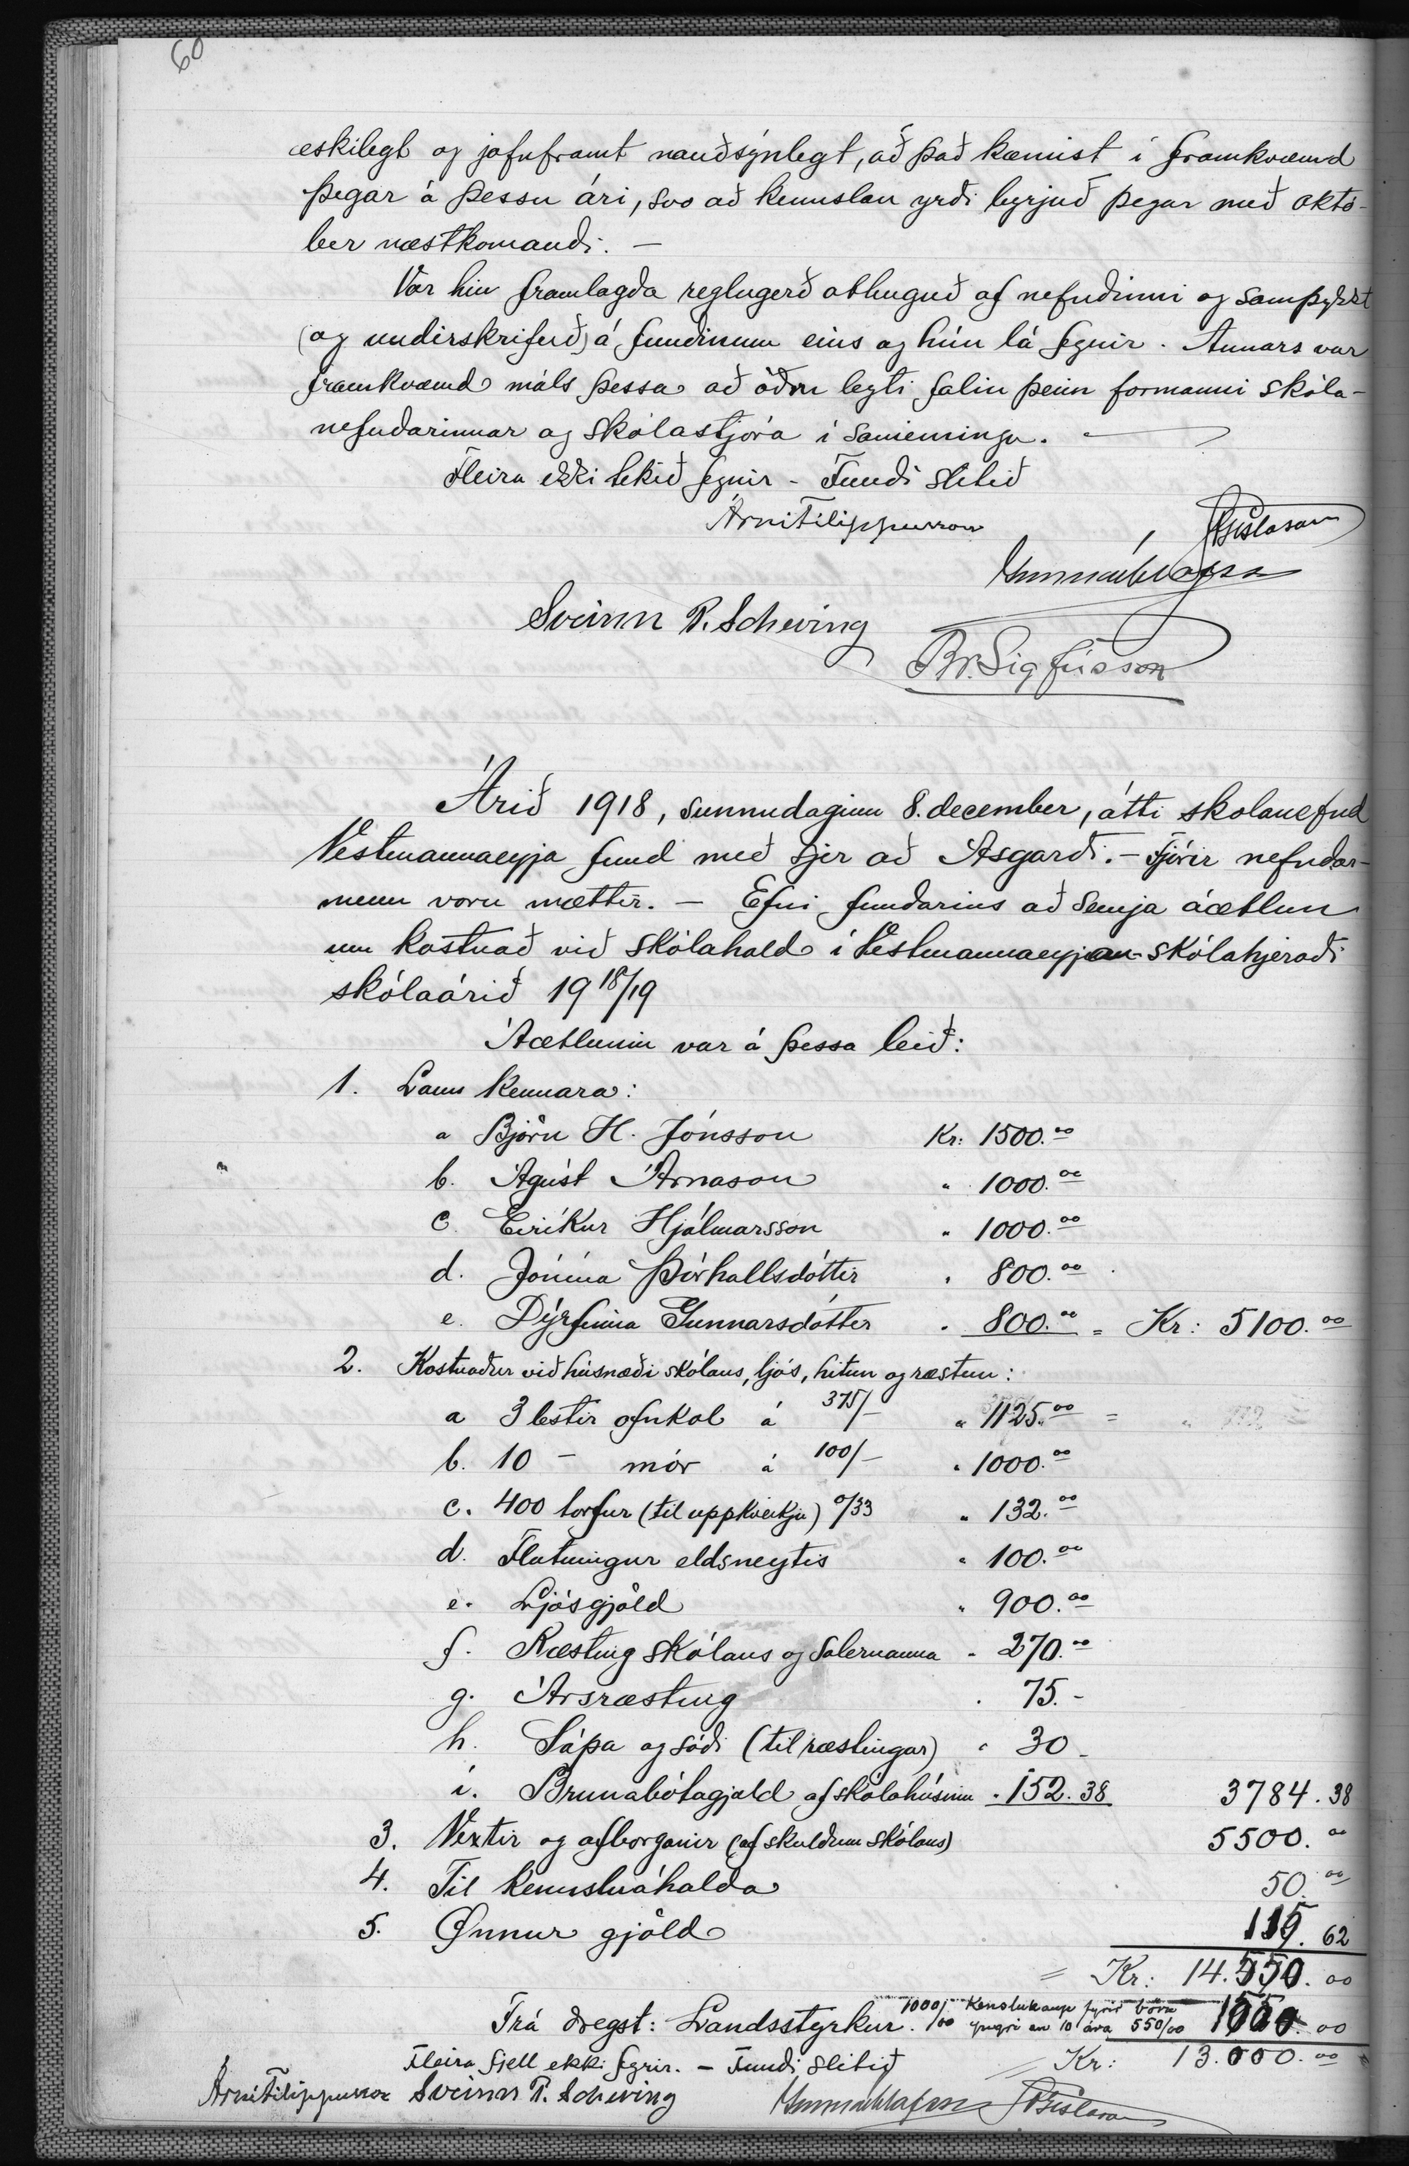 60
æskilegt og jafnframt nauðsynlegt, að það kæmist í framkvæmd
þegar á þessu ári, svo að kennslan yrði byrjuð þegar með októ-
ber næstkomandi. —
Var hin framlagða reglugerð athuguð af nefndinni og samþykkt
(og undirskrifuð) á fundinum eins og hún lá fyrir. Annars var
framkvæmd máls þessa að öðru leyti falin þeim formanni skóla-
nefndarinnar og skólastjóra í sameiningu. —
Fleira ekki tekið fyrir - Fundi slitið
Árni Filippusson
JGíslason
Gunnar Ólafsson
Sveinn P. Scheving
Br. Sigfússon
Árið 1918, sunnudaginn 8. december, átti skolanefnd
Vestmannaeyja fund með sjer að Asgarði. - Fjórir nefndar-
menn voru mættir. — Efni fundarins að semja áætlun
um kostnað við skólahald í Vestmannaeyjum-skólahjeraði
skólaárið 19 18/19
Áætlunin var á þessa leið:
1. Laun kennara:
a Björn H. Jónsson Kr: 1500.00
b. Ágúst Árnason " 1000.00
c. Eiríkur Hjálmarsson " 1000.00
d. Jónína Þórhallsdóttir " 800.00
e. Dýrfinna Gunnarsdóttir " 800.00 = Kr: 5100.00
2. Kostnaður við húsnæði skólans, ljós, hitun og ræstun:
a 3 lestir ofnkol á 375/- " 1125.00 =
b. 10 - mór á 100/- " 1000.00
c. 400 torfur (til uppkveikju) 0/33 " 132.00
d. Flutningur eldsneytis " 100.00
e. Ljósgjöld " 900.00
f. Ræsting skólans og salernanna " 270.00
g. Ársræsting " 75.-
h. Sápa og sódi (til ræstingar) " 30 -
i. Brunabótagjald af skólahúsinu " 152.38 3784.38
3. Vextir og afborganir (af skuldum skólans) 5500.00
4. Til kennsluáhalda 50.00
5. Önnur gjöld 115.62
= Kr: 14.550.00
Frá dregst: Landsstyrkur 1000/00 Kenslukaup fyrir börn
yngri en 10 ára 550/00 1550.00
Fleira fjell ekki fyrir. - Fundi slitið = Kr: 13.000.00
Árni Filippusson Sveinn P. Scheving Gunnar Ólafsson JGíslason